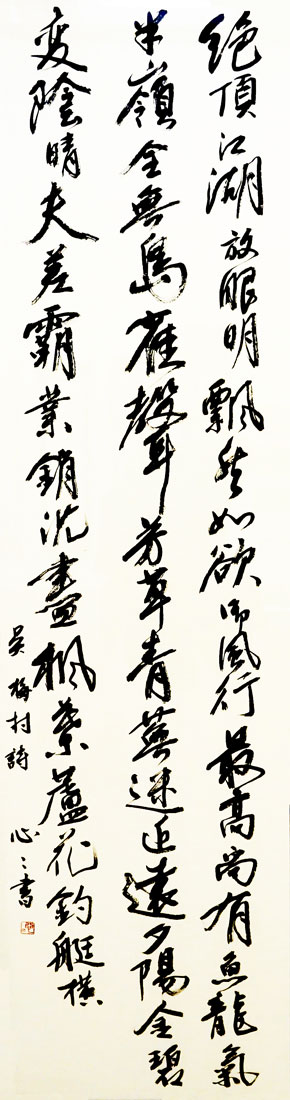 絕頂江湖放眼明飄然如欲御風行最高尚有魚龍氣
半嶺全無鳥雀聲芳草青蕪迷近遠夕陽金碧
變陰晴夫差霸業銷沈盡楓葉蘆花釣艇橫
吳梅村詩 心〻書